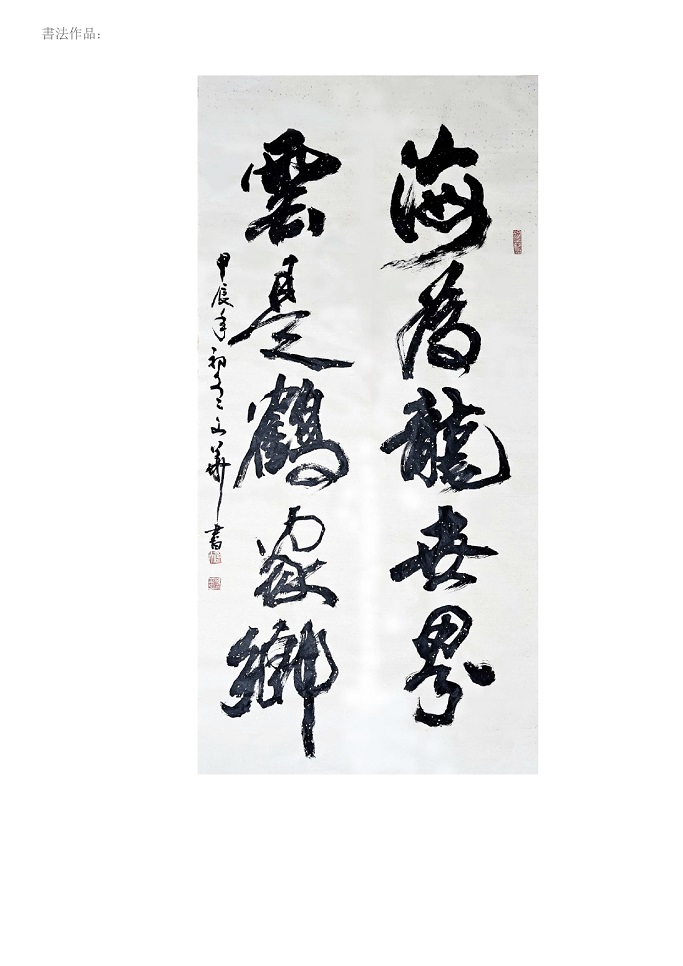 書法作品：
海為龍世界
雲是鶴家鄉
甲辰年初冬文華書